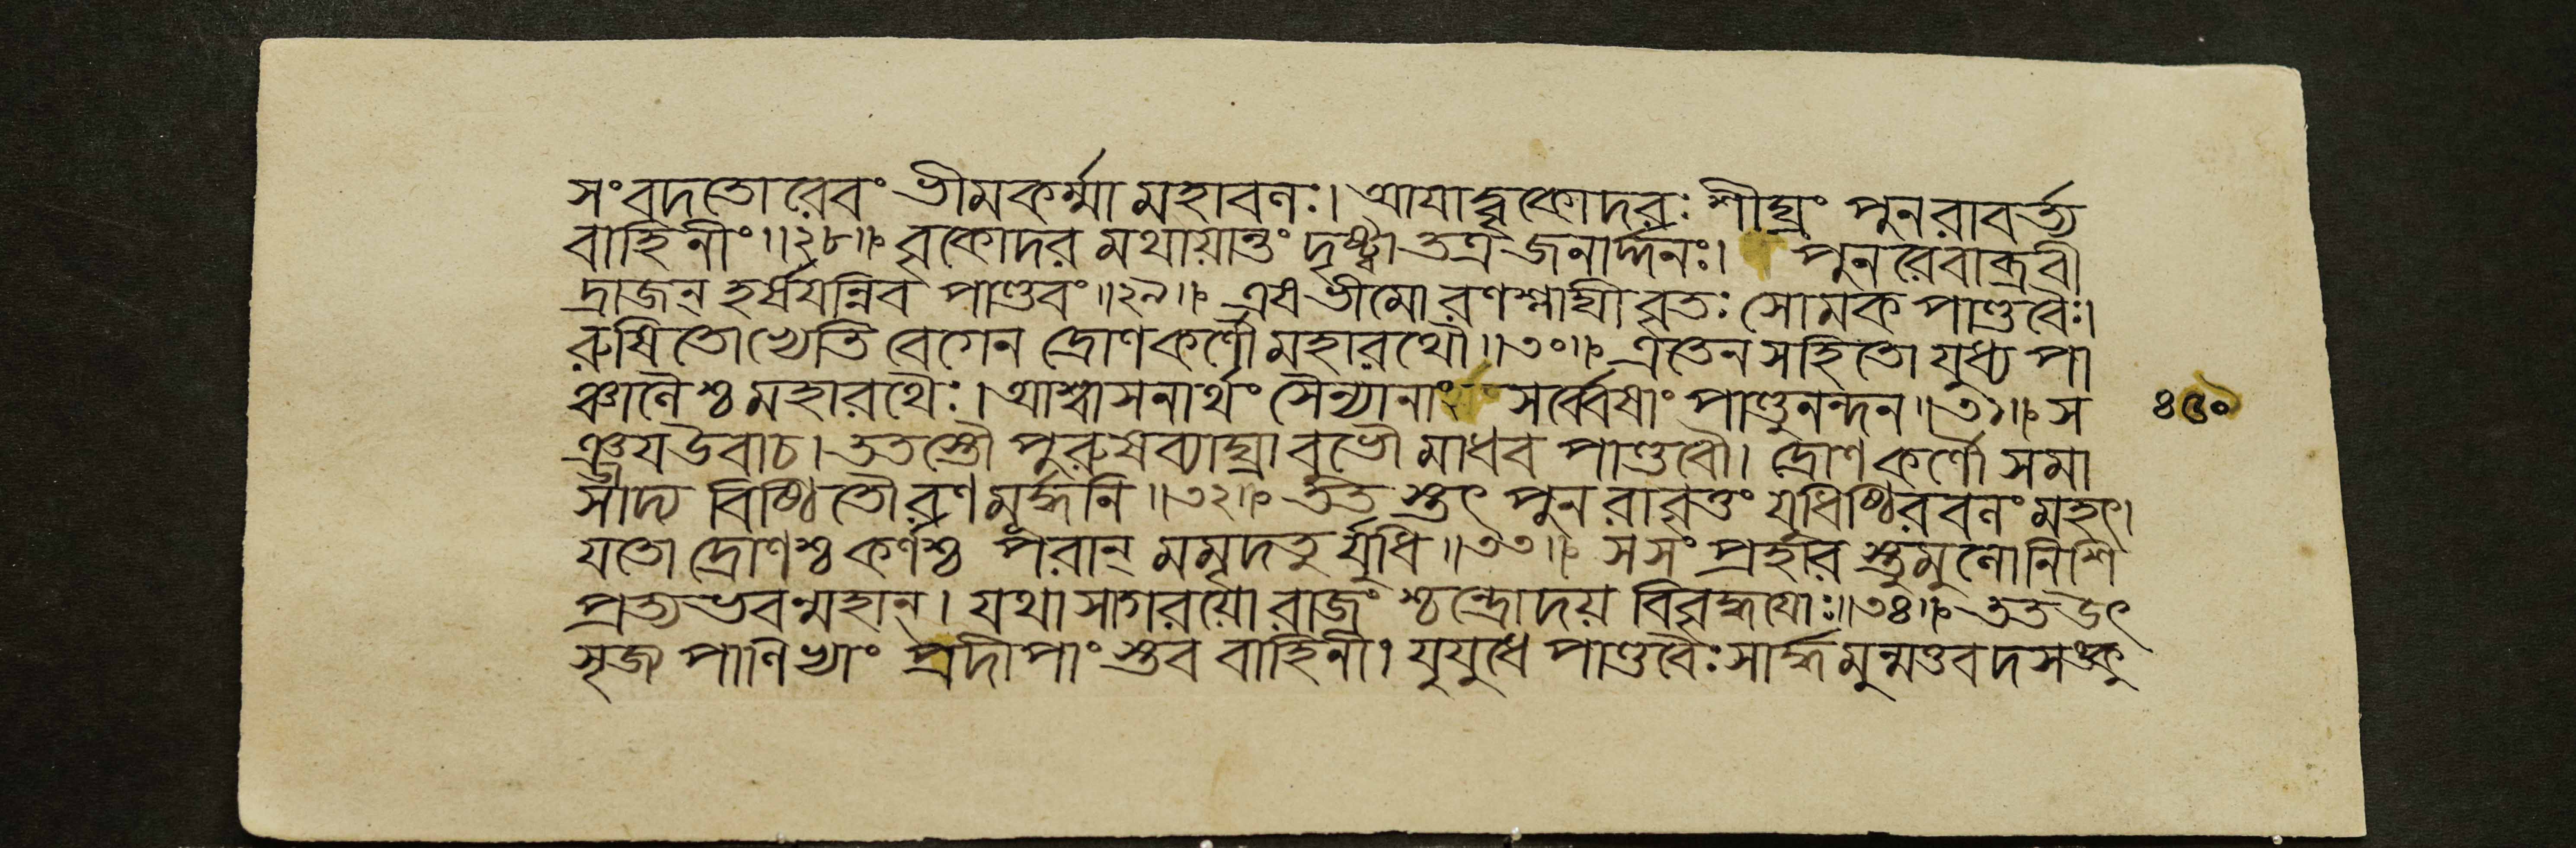 সংবদতোরেবং ভীমকর্ম্মা মহাবলঃ। আযাদ্বৃকোদরঃ শীঘ্রং পুনরাবর্ত্ত্য
বাহিনীং॥২৮॥ বৃকোদরমথায়ান্তং দৃষ্ট্বা তত্র জনার্দ্দনঃ। পুনরেবাব্রবী
দ্রাজন্ হর্ষযন্নিব পাণ্ডবং॥২৯॥ এষ ভীমো রণশ্লাঘী বৃতঃ সোমকপাণ্ডবৈঃ।
রুষিতোভ্যেতি বেগেন দ্রোণকর্ণৌ মহারথৌ॥৩০॥ এতেন সহিতো যুধ্য পা
ঞ্চালৈশ্চ মহারথৈঃ। আশ্বাসনার্থং সৈন্যানাং সর্ব্বেষাং পাণ্ডুনন্দন॥৩১॥ স
ঞ্জয উবাচ। ততস্তৌ পুরুষব্যাঘ্রাবুভৌ মাধবপাণ্ডবৌ। দ্রোণকর্ণৌ সমা
সাদ্য বিষ্ঠিতৌ রণমূর্দ্ধনি॥৩২॥ ততস্তৎ পুনরাবৃত্তং যুধিষ্ঠিরবলং মহৎ।
যতো দ্রোণশ্চ কর্ণশ্চ পরান্ মমৃদতুর্যুধি॥৩৩॥ স সংপ্রহারস্তুমুলো নিশি
প্রত্যভবন্মহান্। যথা সাগরয়ো রাজংশ্চন্দ্রোদয়বিবৃদ্ধযোঃ॥৩৪॥ তত উৎ
সৃজ্য পাণিভ্যাং প্রদীপাংস্তব বাহিনী। যুযুধে পাণ্ডবৈঃ সার্দ্ধমুন্মত্তবদসঙ্কু
৪৫০